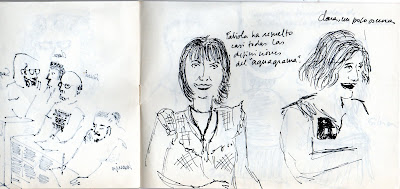 Fabiola ha resuelto
casi todas las
definiciones
del "aquagrama".
Clara, un poco oscura